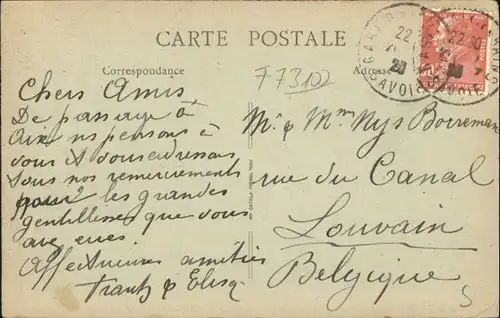 CARTE POSTALE
Correspondance
Adresse
F73102
Chers Amis
De passage à
Aix ns pensons à
vous & vous adressons
tous nos remerciements
pour les grandes
gentillesses que vous
avez eues.
Affectueuses amitiés
Frantz &
Mr & Mme Nys Boireman
rue du Canal
Louvain
Belgique